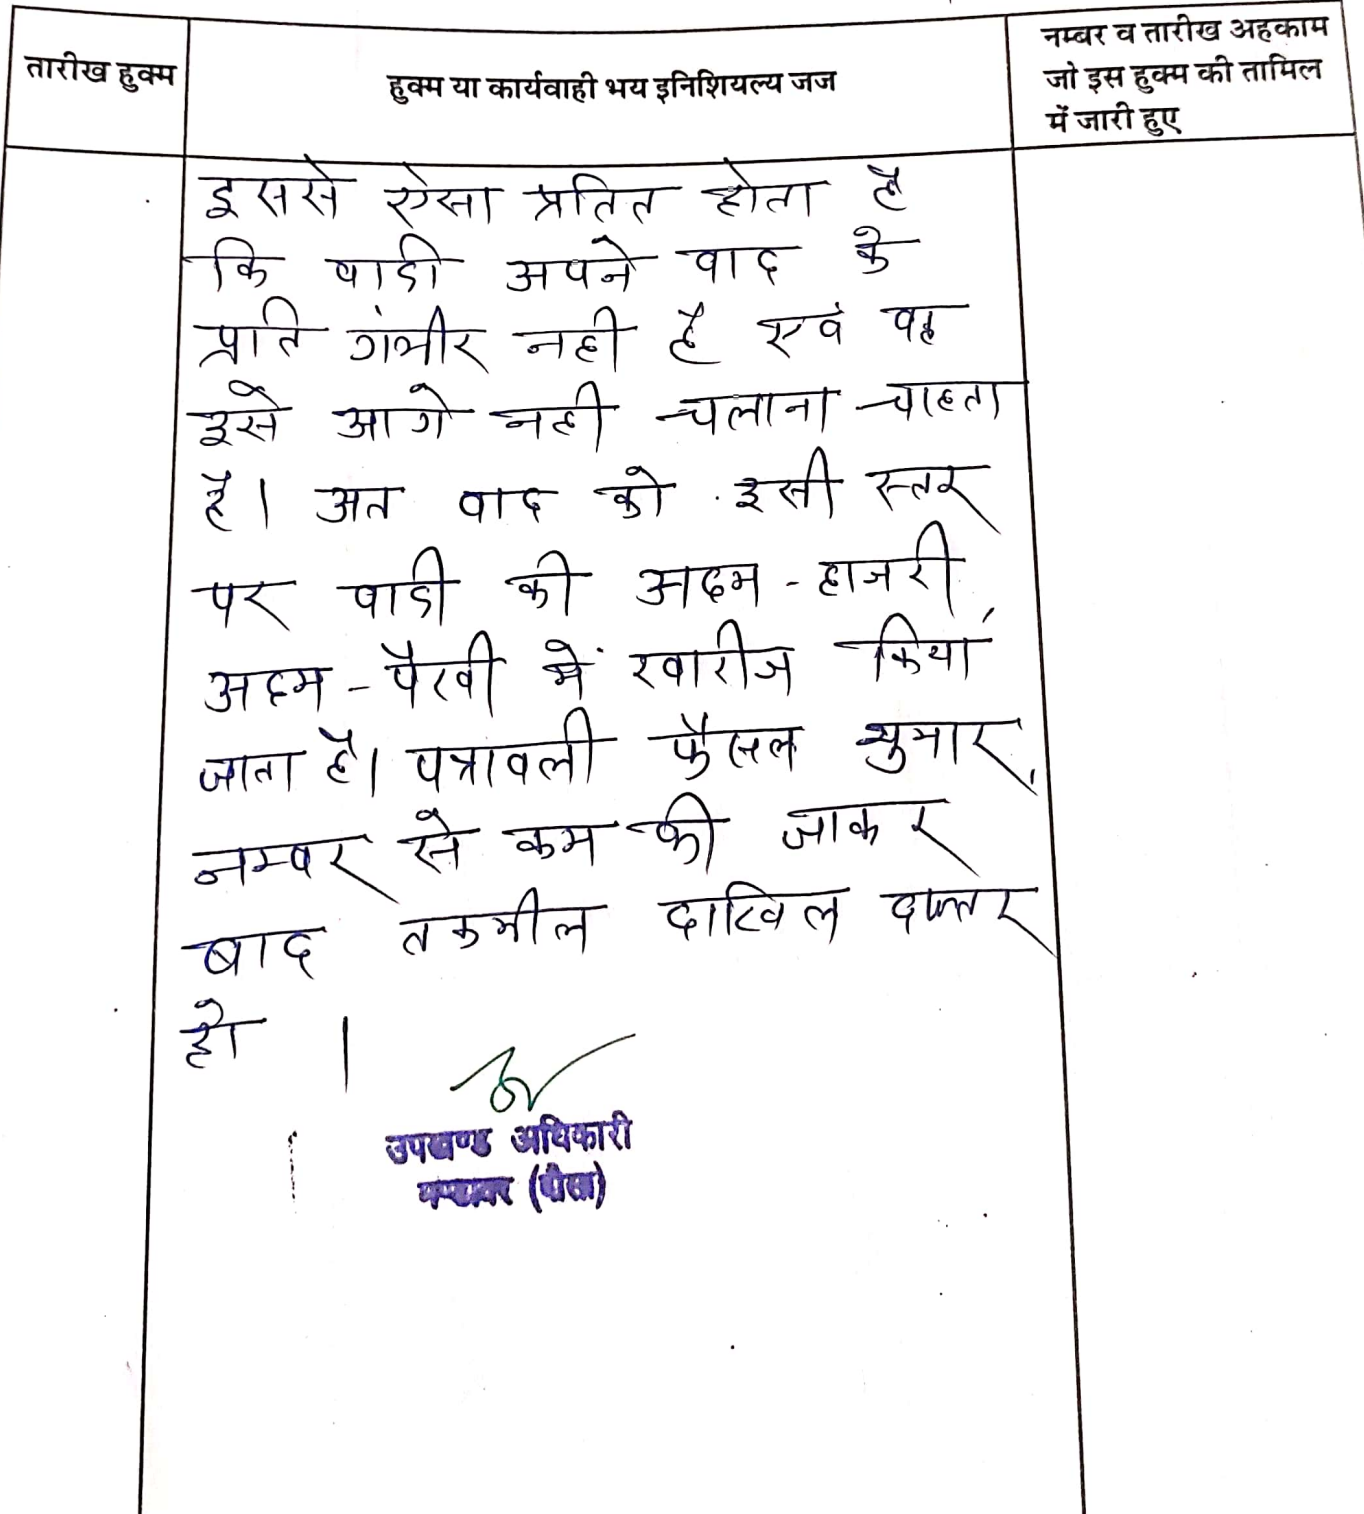 तारीख हुक्म
हुक्म या कार्यवाही भय इनिशियल्य जज
नम्बर व तारीख अहकाम
जो इस हुक्म की तामिल
में जारी हुए
इससे ऐसा प्रतित होता है
कि वादी अपने वाद के
प्रति गंभीर नही है एवं वह
इसे आगे नही चलाना चाहता
है। अत वाद को इसी स्तर
पर वादी की अदम - हाजरी
अदम - पैरवी में खारीज किया
जाता है। पत्रावली फैसल शुमार,
नम्बर से कम की जाकर
बाद तकमील दाखिल दफ्तर
हो ।
उपखण्ड अधिकारी
(दौसा)